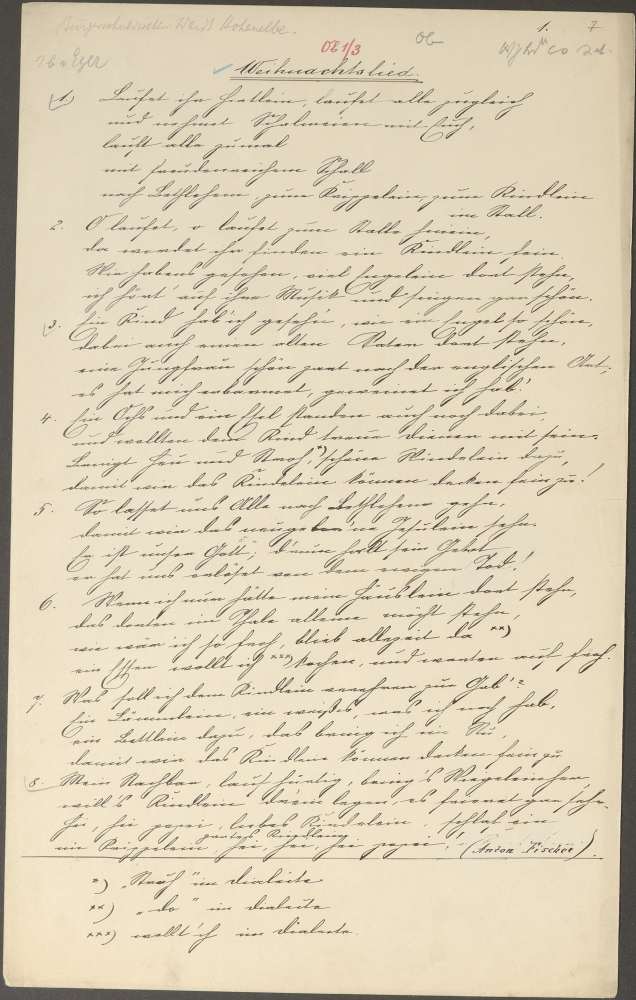 Bürgerschuldirektor Weiß Hohenelbe.
1. 7
OE 1/3 Ob
Eger
Weihnachtslied.
1.) Laufet ihr Hirtlein, laufet alle zugleich
und nehmet Schalmeien mit Euch,
lauft alle zumal
mit freudenreichem Schall
nach Bethlehem zum Krippelein, zum Kindlein
im Stall.
2. O laufet, o laufet zum Stalle hinein,
da werdet ihr finden ein Kindlein fein.
Wir habens gesehen, viel Engelein dort stehn,
ich hört' auch ihre Musik und singen gar schön.
3. Ein Kind hab' ich gesehn, wie ein Engel so schön,
dabei auch einen alten Vater dort stehn,
eine Jungfrau schön zart nach der englischen Art,
es hat mich erbarmet, geweinet ich hab'.
4. Ein Ochs und ein Esel standen auch noch dabei,
und wollten dem Kind treue Diener mit sein.
Bringt Heu und Stroh,*) schöne Windelein dazu,
damit wir das Kindelein können decken fein zu!
5. So lasset uns Alle nach Bethlehem gehn,
damit wir das neugebor'ne Jesulein sehn.
Er ist unser Gott, d'rum halt sein Gebot
er hat uns erlöset von dem ewigen Tod!
6. Wenn ich nur hätte mein Häuslein dort stehn,
das dorten im Thale alleine möcht stehn,
wie wär' ich so froh, blieb allezeit da **)
ein Essen wollt ich ***) kochen, und warten auf
7. Was soll ich dem Kindlein verehren zur Gab'?
Ein Lämmlein, ein weißes, was ich noch hab,
ein Bettlein dazu, das bring ich in Ruh,
damit wir das Kindlein können decken fein zu
8. Mein Nachbar, lauf hurtig, bring's Wiegelein her
will's Kindlein drein legen, es frieret gar sehr.
Hei, hei popei, liebes Kindelein, schlaf ein
zartes Kindlein
im Krippelein hei, hei, hei popei! (Anton Fischer).
*) "Struh" im Dialecte
**) "do" im Dialecte
***) wollt' ich im Dialecte.